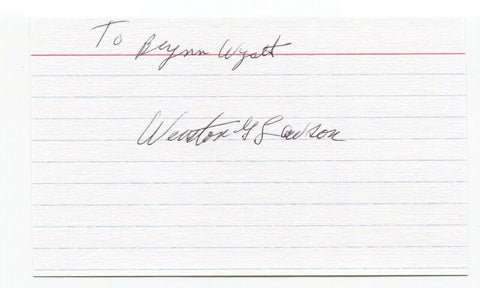 To
Brynn Wyatt
Winston G Lawson